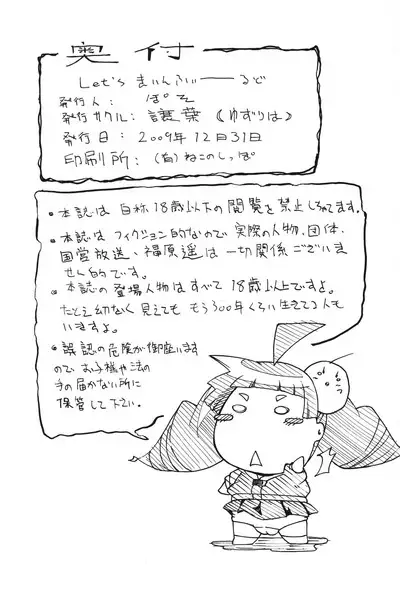 奥付
Let's まいんふぃーーるど
発行人: ぽそ
発行サークル: 譲葉《ゆずりは》
発行日: 2009年12月31日
印刷所: (有)ねこのしっぽ
・本誌は 自称18歳以下の閲覧を禁止しちゃてます。
・本誌は フィクション的なので 実際の人物、団体、
国営放送、福原遥は 一切関係ございま
せん的です。
・本誌の登場人物はすべて 18歳以上ですよ。
たとえ幼なく見えても もう300年くらい生きてる人も
いますよ。
・誤認の危険が御座います
ので お子様や法の
手の届かない所に
保管して下さい。